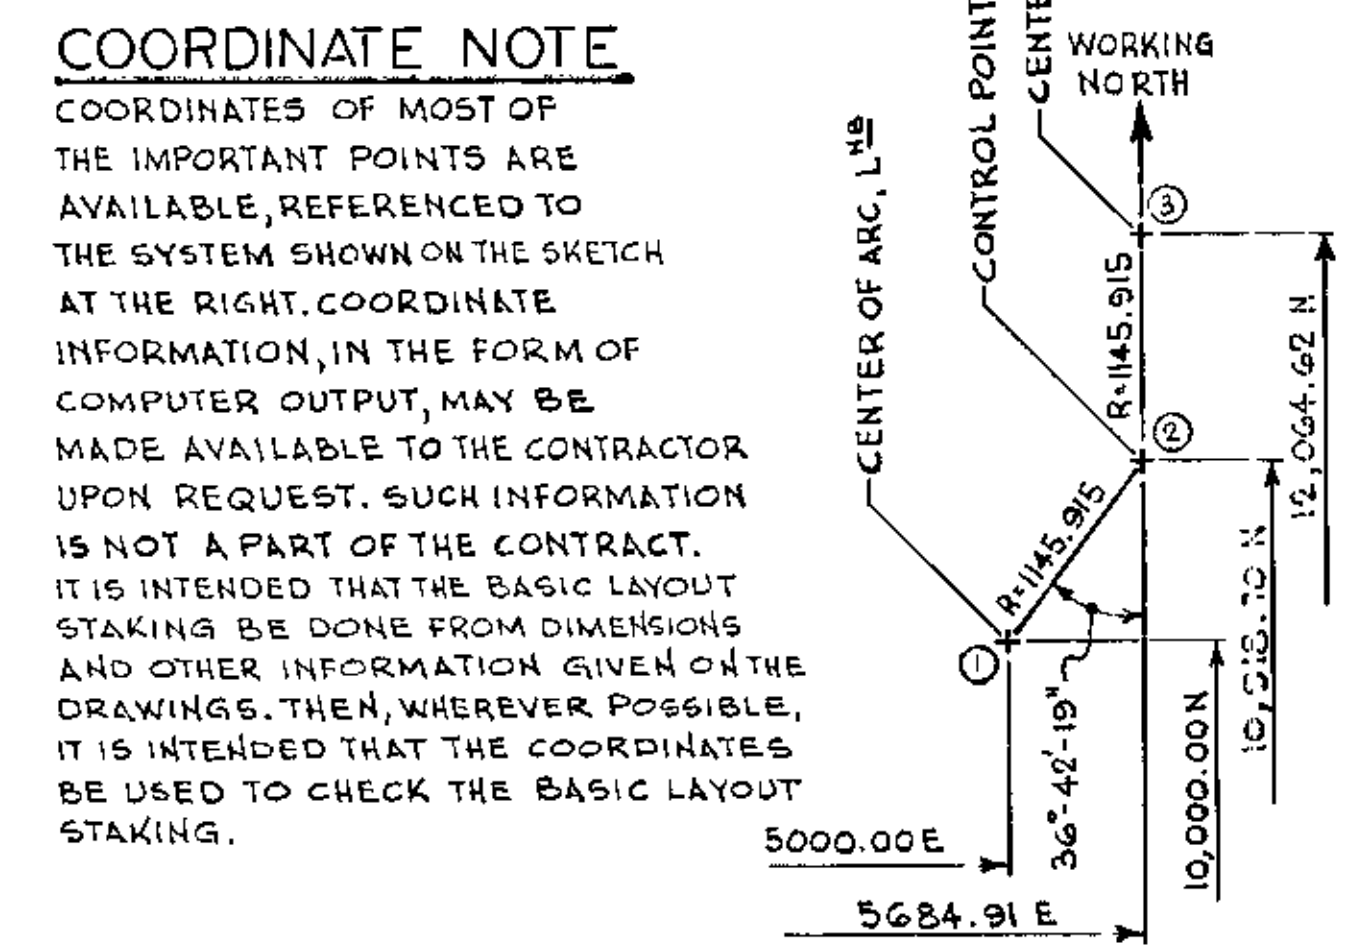 COORDINATE NOTE
COORDINATES OF MOST OF
THE IMPORTANT POINTS ARE
AVAILABLE, REFERENCED TO
THE SYSTEM SHOWN ON THE SKETCH
AT THE RIGHT. COORDINATE
INFORMATION, IN THE FORM OF
COMPUTER OUTPUT, MAY BE
MADE AVAILABLE TO THE CONTRACTOR
UPON REQUEST. SUCH INFORMATION
IS NOT A PART OF THE CONTRACT.
IT IS INTENDED THAT THE BASIC LAYOUT
STAKING BE DONE FROM DIMENSIONS
AND OTHER INFORMATION GIVEN ON THE
DRAWINGS. THEN, WHEREVER POSSIBLE,
IT IS INTENDED THAT THE COORDINATES
BE USED TO CHECK THE BASIC LAYOUT
STAKING.
CENTER OF ARC, LHB
CONTROL POINT
WORKING
NORTH
3
R=1145.915
12,064.62 N
2
R=1145.915
1
36°-42'-19"
10,000.00N
5000.00E
5684.91 E